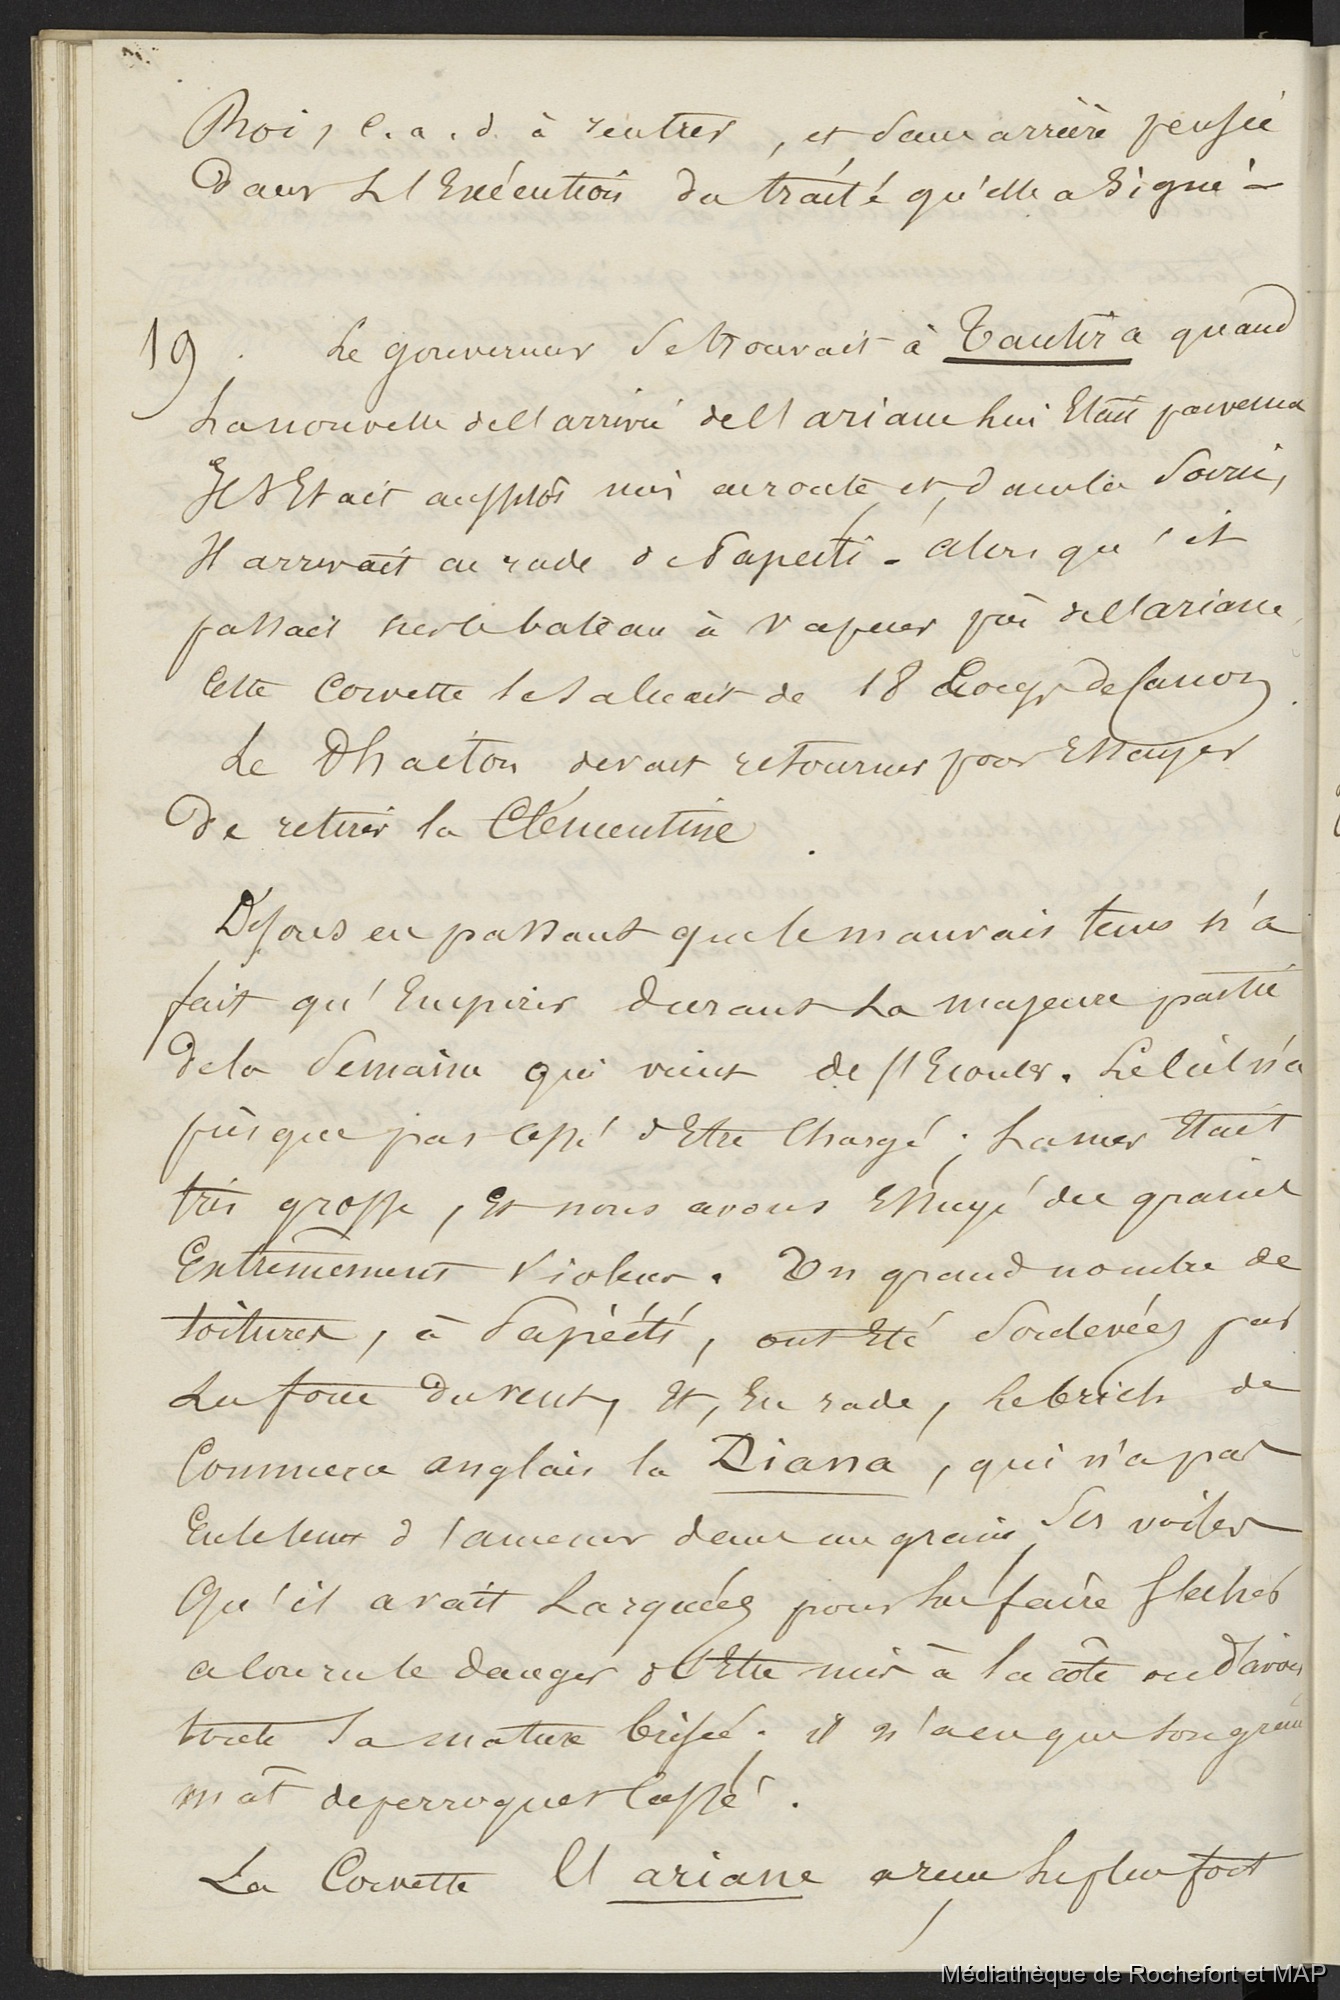 Roi, c.a.d. à rentrer, et sans arrière pensée
dans l'Exécution du traité qu'elle a signé -
19. Le gouverneur se trouvait à Tautira quand
La nouvelle de l'arrivée de l'ariane lui Etait parvenue
Il s'Etait aussitôt mis en route et, dans la soirée,
Il arrivait en rade de Papeiti - alors qu'il
passait sur le bateau à vapeur près de l'ariane,
Cette Corvette le saluait de 18 Coups de Canon.
Le Phaëton devait retourner pour Essayer
De retirer la Clémentine.
Disons en passant que le mauvais tems n'a
fait qu'Empirer durant La majeure partie
De la Semaine qui vient de s'Ecouler. Le Ciel n'a
presque pas cessé d'Etre Chargé; La mer Etait
très grosse, Et nous avons Essuyé des grains
Extrêmement Violens. Un grand nombre de
toitures, à Papéété, ont Eté Soulevées par
La force du vent, Et, En rade, Le brick de
Commerce anglais la Diana, qui n'a pas
Eu le tems d'amener dans un grain, Ses voiles
Qu'il avait Larguées pour les faire Sécher
a couru le danger d'Etre mis à la côte ou d'avoir
toute Sa mature brisée; il n'a eu que son grand
mât de perroquet Cassé.
La Corvette l'ariane a reçu le plus fort
Médiathèque de Rochefort et MAP